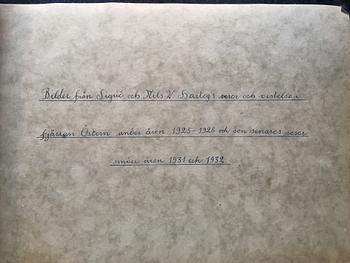 Bilder från Signe och Nils V. resor och vistelse i
fjärran Östern under åren 1925-1928 och den senares resor
under åren 1931 och 1932